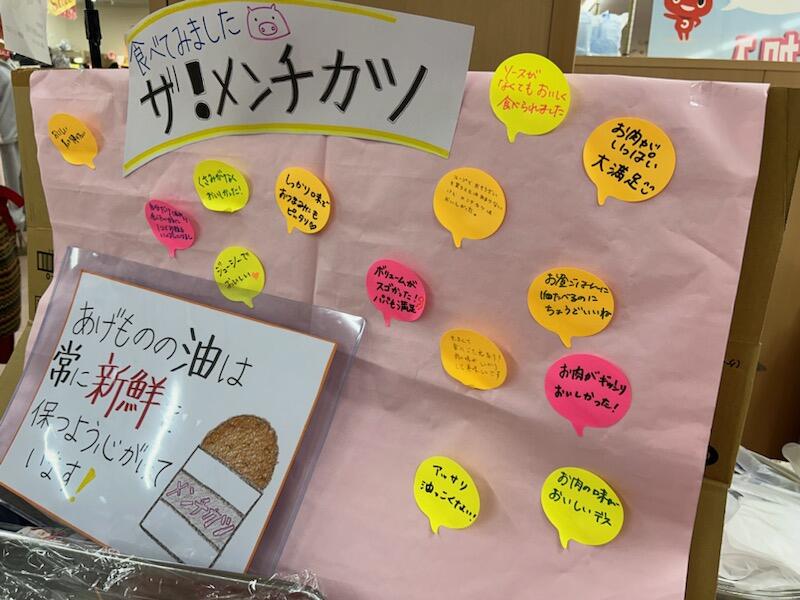 食べてみました
ザ!メンチカツ
ソースが
なくてもおいしく
食べられました
お肉が
いっぱい
大満足
おいしい
くさみがなく
おいしかった!
しっかり味で
おつまみにも
ピッタリ
ジューシーで
おいしい
ボリュームが
スゴかった!
パパも満足
お昼ごはんに
1個たべるのに
ちょうどいいね
お肉がギッシリ
おいしかった!
アッサリ
油っこくない!
お肉の味が
おいしいデス
あげものの油は
常に新鮮に
保つよう心がけて
います!
メンチカツ